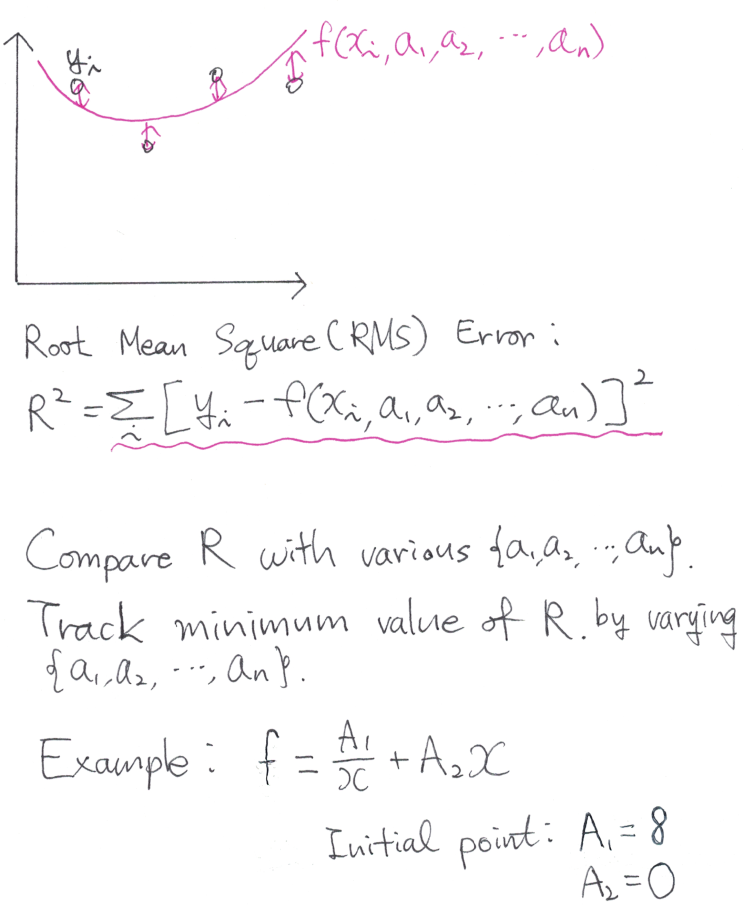 f(xᵢ, a₁, a₂, ⋯, aₙ)
yᵢ
Root Mean Square (RMS) Error :
R² = Σᵢ [ yᵢ − f(xᵢ, a₁, a₂, ⋯, aₙ) ]²
Compare R with various {a₁, a₂, ⋯, aₙ}.
Track minimum value of R. by varying
{a₁, a₂, ⋯, aₙ}.
Example : f = A₁/x + A₂x
Initial point : A₁ = 8
A₂ = 0